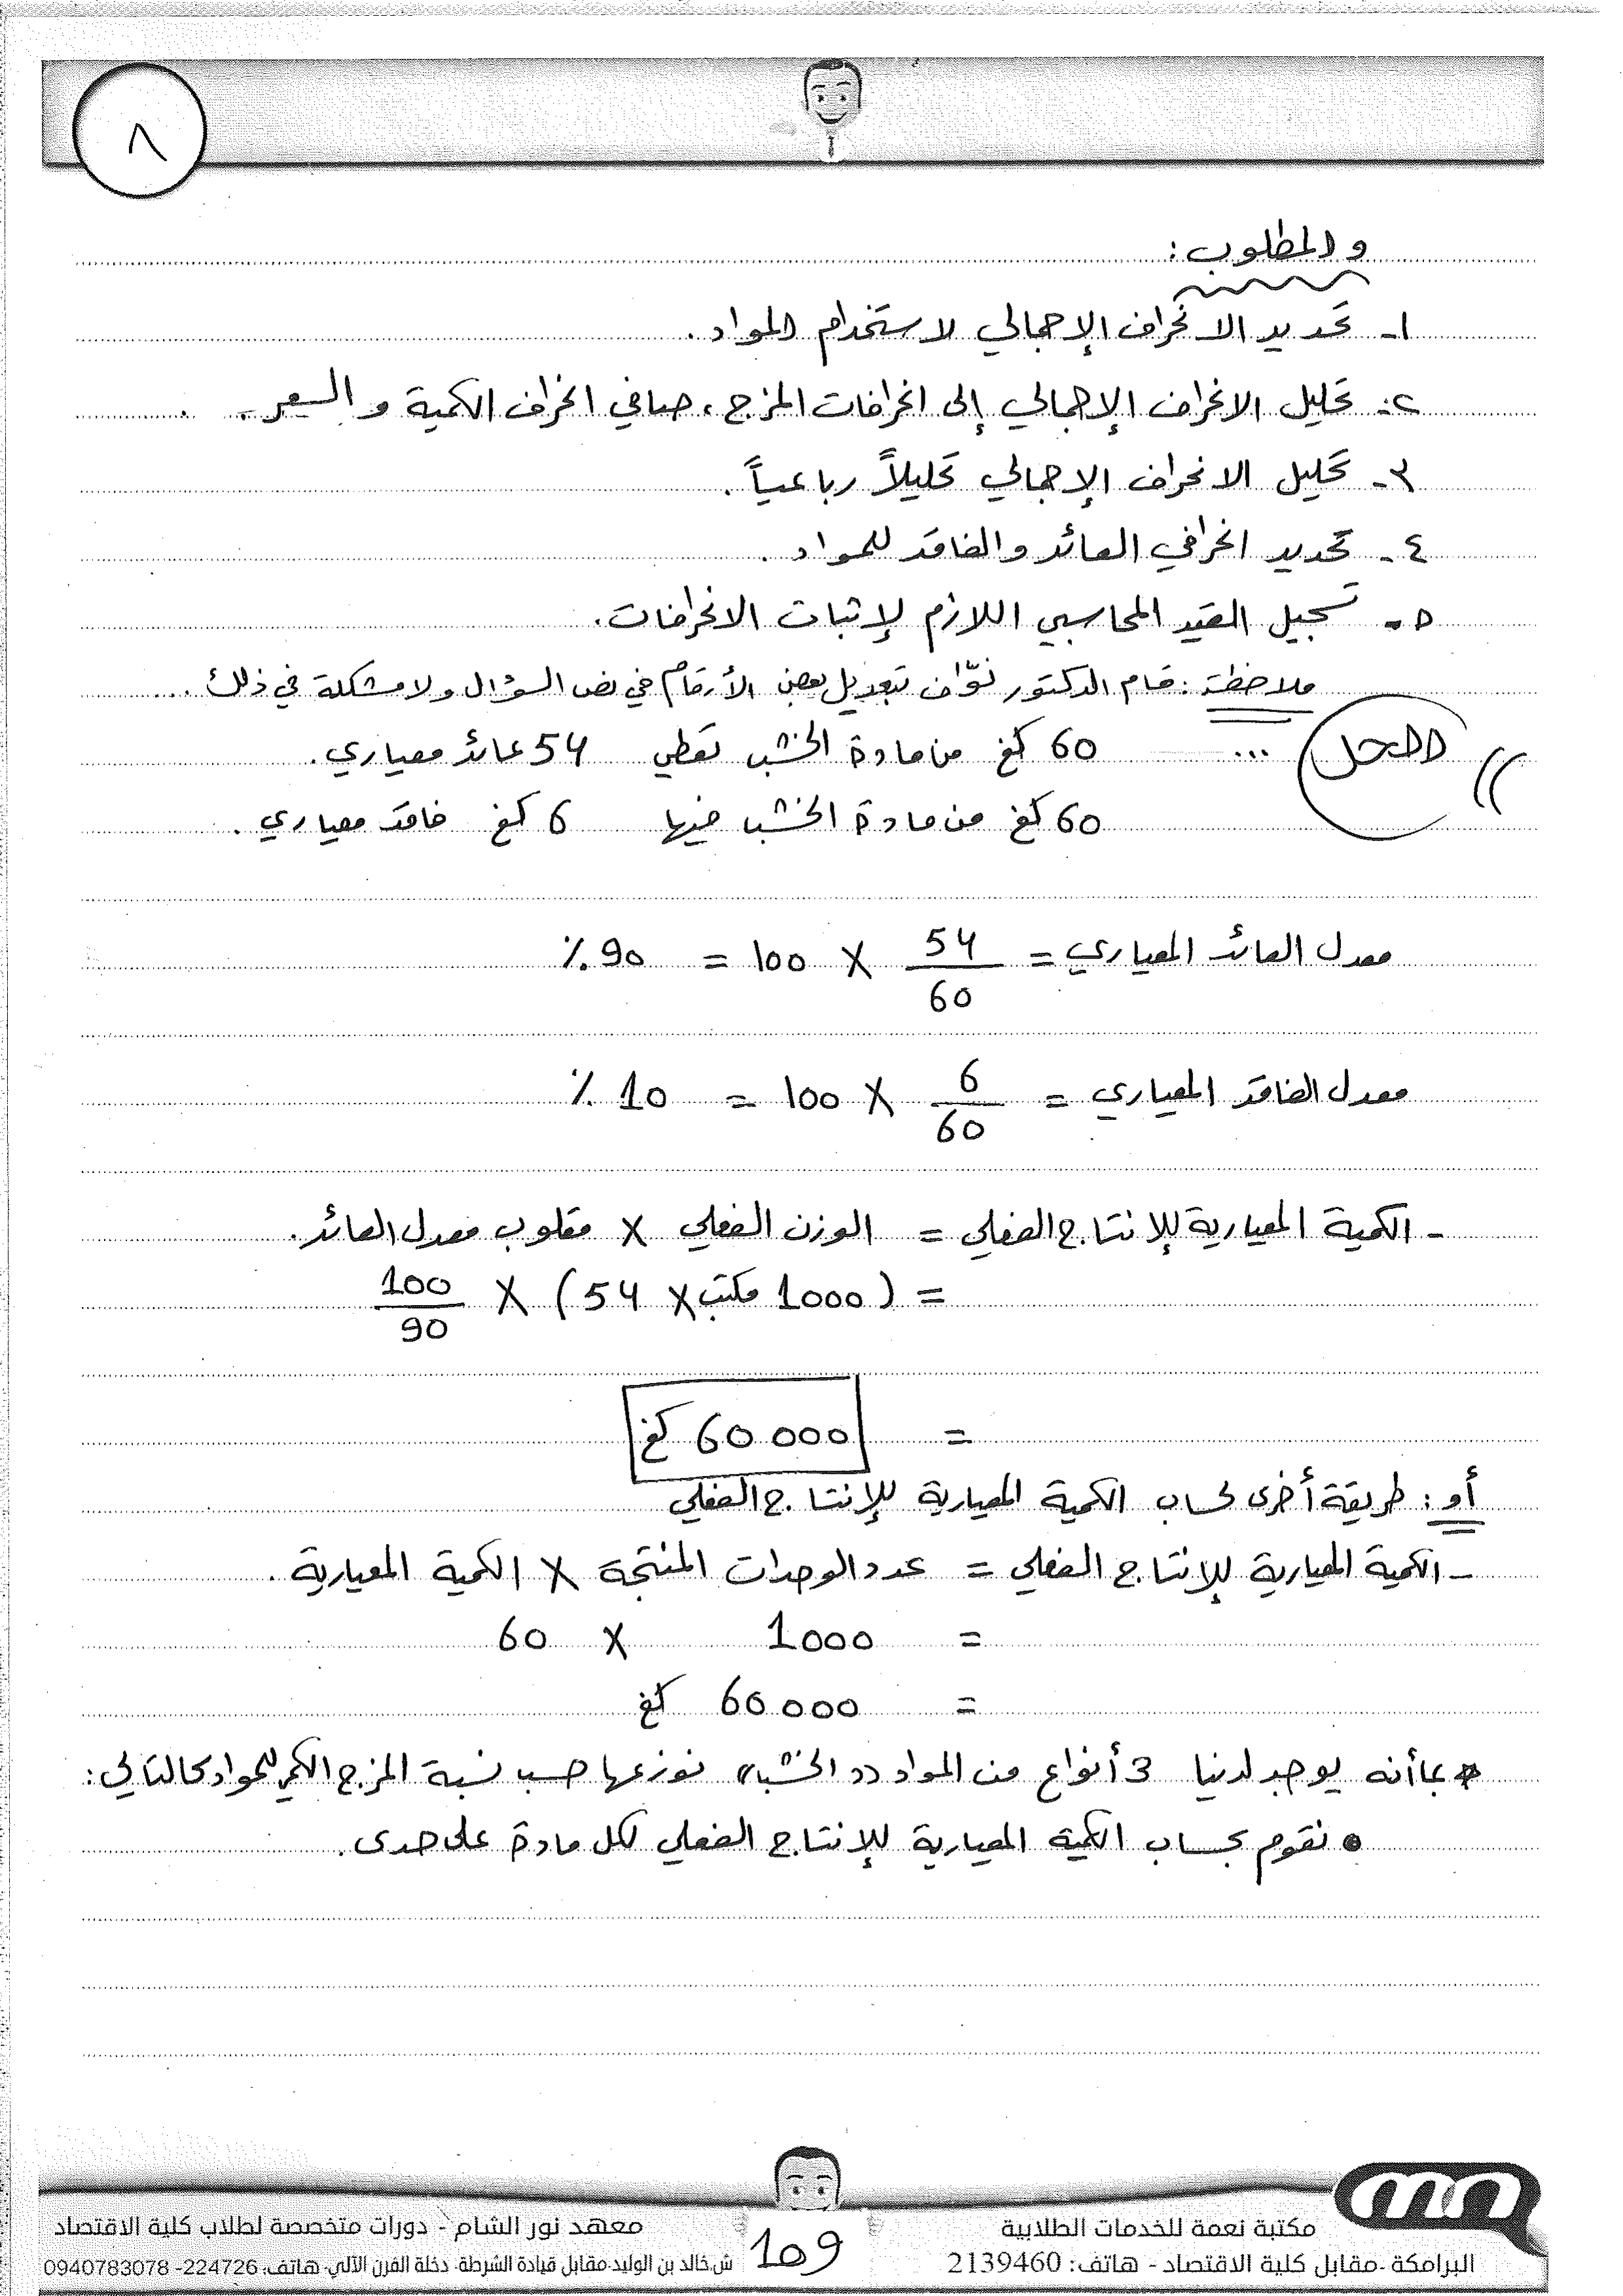 ٨
والمطلوب:
١- تحديد الانحراف الإجمالي لاستخدام المواد.
٢- تحليل الانحراف الإجمالي إلى انحرافات المزج، صافي انحراف الكمية والسعر.
٣- تحليل الانحراف الإجمالي تحليلاً رباعياً.
٤- تحديد انحرافي العائد والفاقد للمواد.
٥- تسجيل القيد المحاسبي اللازم لإثبات الانحرافات.
ملاحظة: قام الدكتور نوّاف بتعديل بعض الأرقام في نص السؤال ولا مشكلة في ذلك ...
الحل ... 60 كغ من مادة الخشب تعطي 54 عائد معياري.
60 كغ من مادة الخشب فيها 6 كغ فاقد معياري.
معدل العائد المعياري = 54/60 × 100 = 90 %
معدل الفاقد المعياري = 6/60 × 100 = 10 %
- الكمية المعيارية للإنتاج الفعلي = الوزن الفعلي × مقلوب معدل العائد.
= (1000 مكتب × 54) × 100/90
= 60000 كغ
أو: طريقة أخرى لحساب الكمية المعيارية للإنتاج الفعلي
- الكمية المعيارية للإنتاج الفعلي = عدد الوحدات المنتجة × الكمية المعيارية.
= 1000 × 60
= 60000 كغ
* بما أنه يوجد لدينا 3 أنواع من المواد "الخشب" نوزعها حسب نسبة المزج الكمي للمواد كالتالي:
• نقوم بحساب الكمية المعيارية للإنتاج الفعلي لكل مادة على حدى.
مكتبة نعمة للخدمات الطلابية
البرامكة - مقابل كلية الاقتصاد - هاتف: 2139460
109
معهد نور الشام - دورات متخصصة لطلاب كلية الاقتصاد
ش.خالد بن الوليد-مقابل قيادة الشرطة- دخلة الفرن الآلي- هاتف: 224726- 0940783078